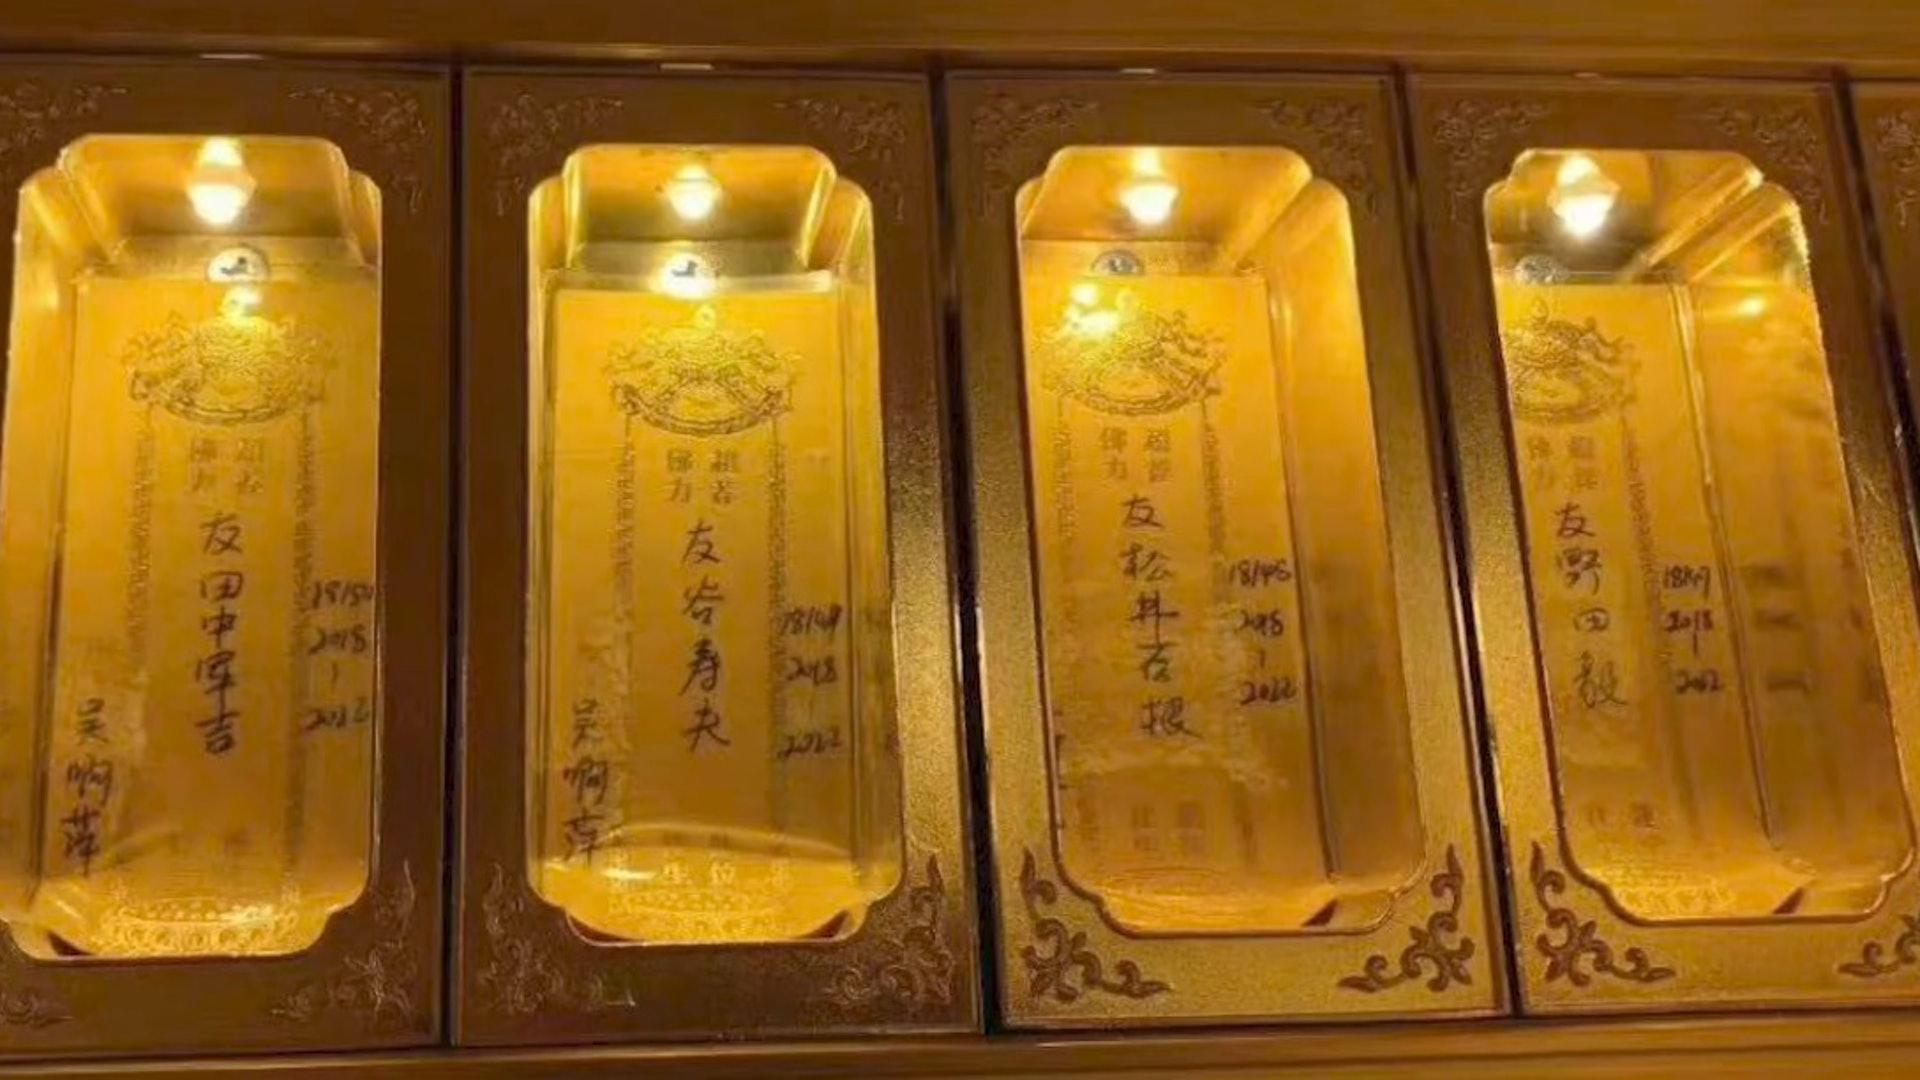 佛力
超荐
友田中军吉
18150
2018
|
2022
吴啊萍
佛力
超荐
友谷寿夫
18149
2018
|
2022
吴啊萍
佛力
超荐
友松井石根
18148
2018
|
2022
佛力
超荐
友野田毅
18147
2018
|
2022